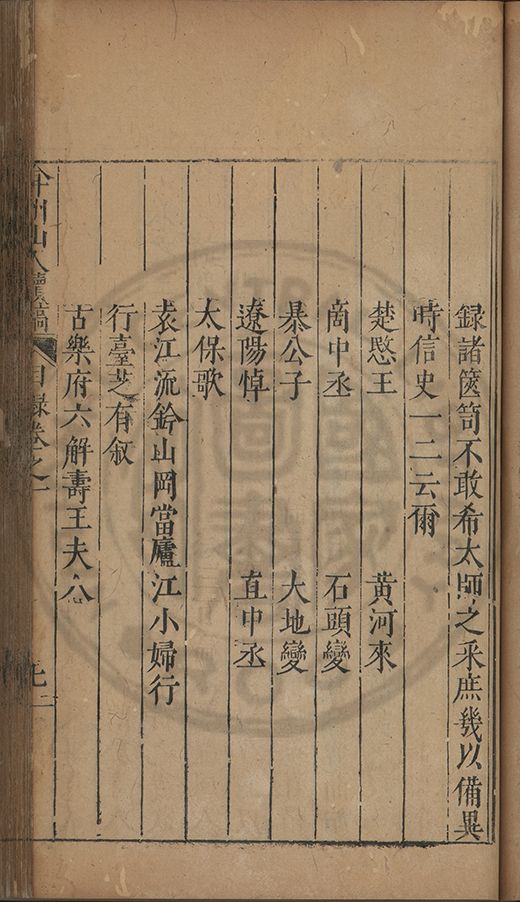 録諸篋笥不敢希太師之采庶幾以備異
時信史一二云爾
楚愍王　黃河來
商中丞　石頭變
暴公子　大地變
遼陽悼　直中丞
太保歌
袁江流鈐山岡當廬江小婦行
行臺芝有叙
古樂府六解壽王夫公
弇州山人續稿　目録卷之一